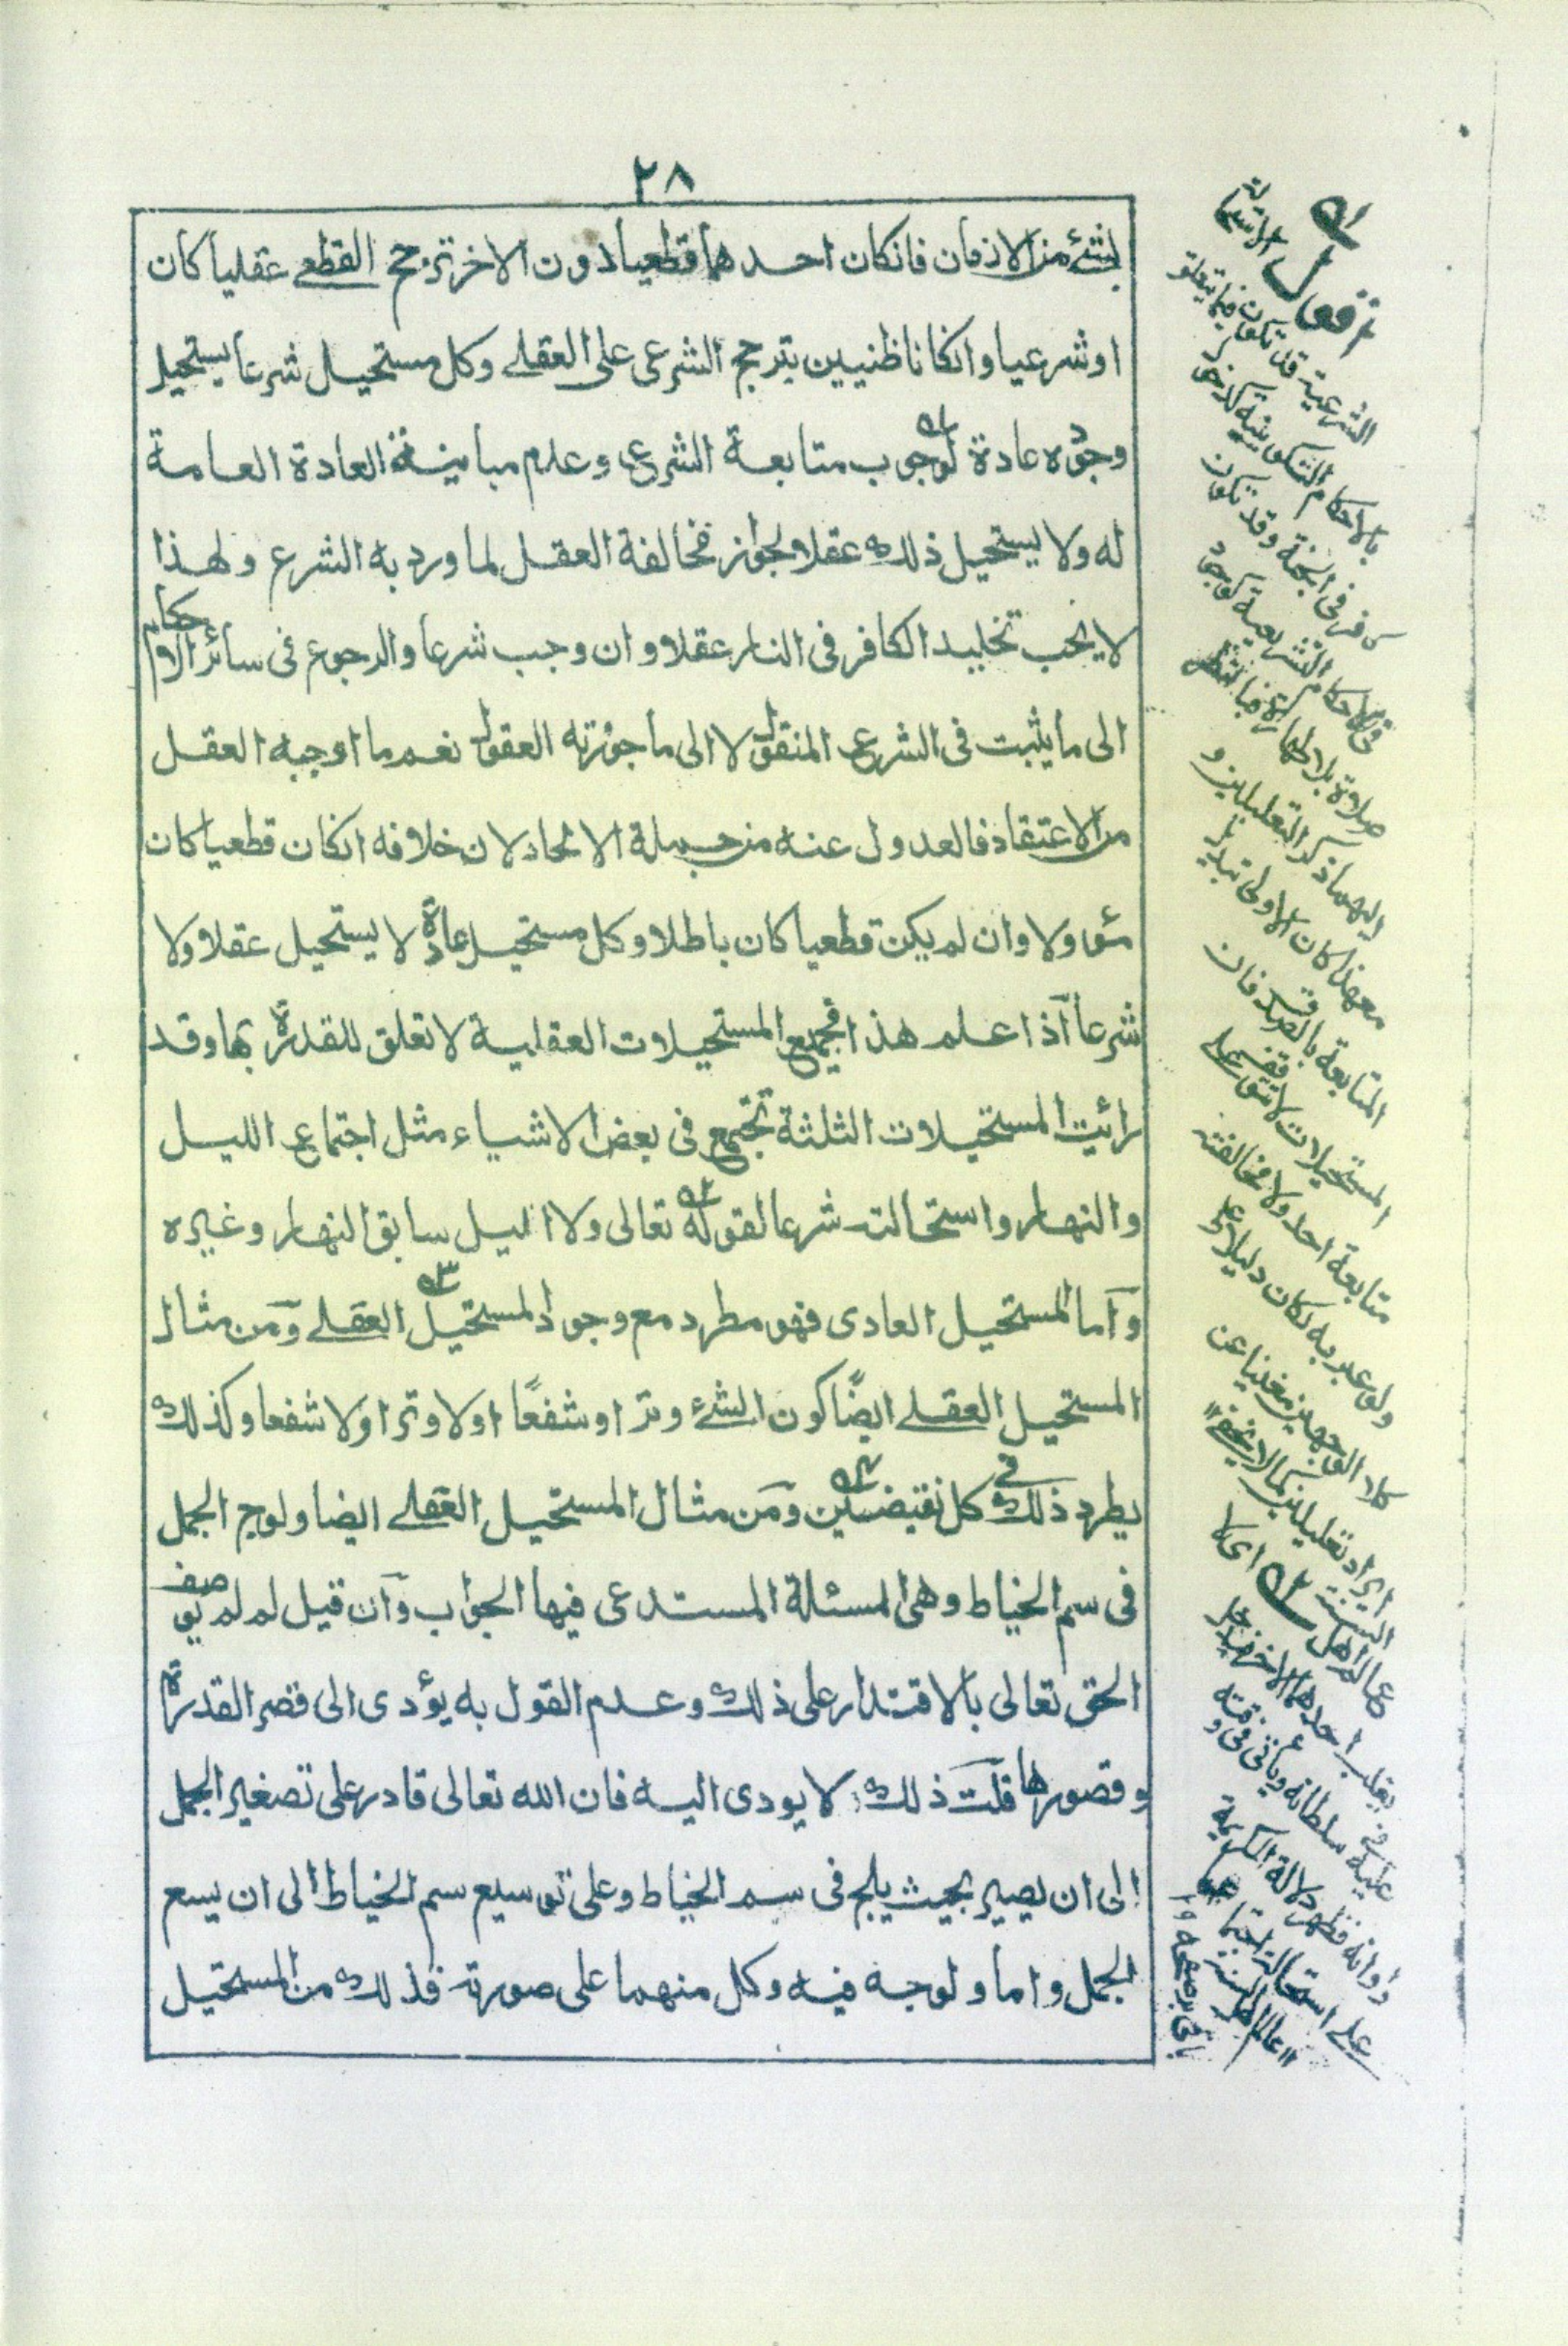 ٢٨
بشئ من الاذعان فانكان احدهما قطعيا دون الاخر ترجح القطعى عقليا كان
او شرعيا وانكانا ظنيين يترجح الشرعى على العقلے وكل مستحيل شرعا يستحيل
وجوده عادة لوجوب متابعة الشرع وعدم مباينة العادة العامة
له ولا يستحيل ذلك عقلا ولجواز مخالفة العقل لما ورد به الشرع ولهذا
لا يجب تخليد الكافر فى النار عقلا وان وجب شرعا والرجوع فى سائر الاحكام
الى ما يثبت فى الشرع المنقول لا الى ما جوزته العقول نعم ما اوجبه العقل
من الاعتقاد فالعدول عنه من جملة الالحاد لان خلافه انكان قطعيا كان
مئولا وان لم يكن قطعيا كان باطلا وكل مستحيل عادة لا يستحيل عقلا ولا
شرعا آذا علم هذا فجميع المستحيلات العقلية لا تعلق للقدرة بها وقد
رائيت المستحيلات الثلثة تجتمع فى بعض الاشياء مثل اجتماع الليل
والنهار واستحالته شرعا لقوله تعالى ولا اليل سابق النهار وغيره
وآما المستحيل العادى فهو مطرد مع وجود المستحيل العقلے ومن مثال
المستحيل العقلے ايضًا كون الشئ وترا وشفعًا اولا وترا ولا شفعا وكذلك
يطرد ذلك فى كل نقيضين ومن مثال المستحيل العقلے ايضا ولوج الجمل
فى سم الخياط وهى المسئلة المستدعى فيها الجواب وآن قيل لم لم يوصف
الحق تعالى بالاقتدار على ذلك وعدم القول به يؤدى الى قصر القدرة
وقصورها قلت ذلك لا يودى اليه فان الله تعالى قادر على تصغير الجمل
الى ان يصير بحيث يلج فى سم الخياط وعلى توسيع سم الخياط الى ان يسع
الجمل واما ولوجه فيه وكل منهما على صورته فذلك من المستحيل
اقول
الشرعية قد تكون فيما يتعلق
بالاحكام التكوينية كدخول
كافر فى الجنة وقد تكون
فى الاحكام التشريعية كوجود
صلاة بلا طهارة
اليهما ذكر التعليلين و
معهذا كان الاولى تبديل
المتابعة بالصدق فان
المستحيلات لا تتوقف على
متابعة احد ولا مخالفته
ولو عبر به لكان دليلا على
كلا الوجهين مغنيا عن
ايراد تعليلين كما لا يخفى